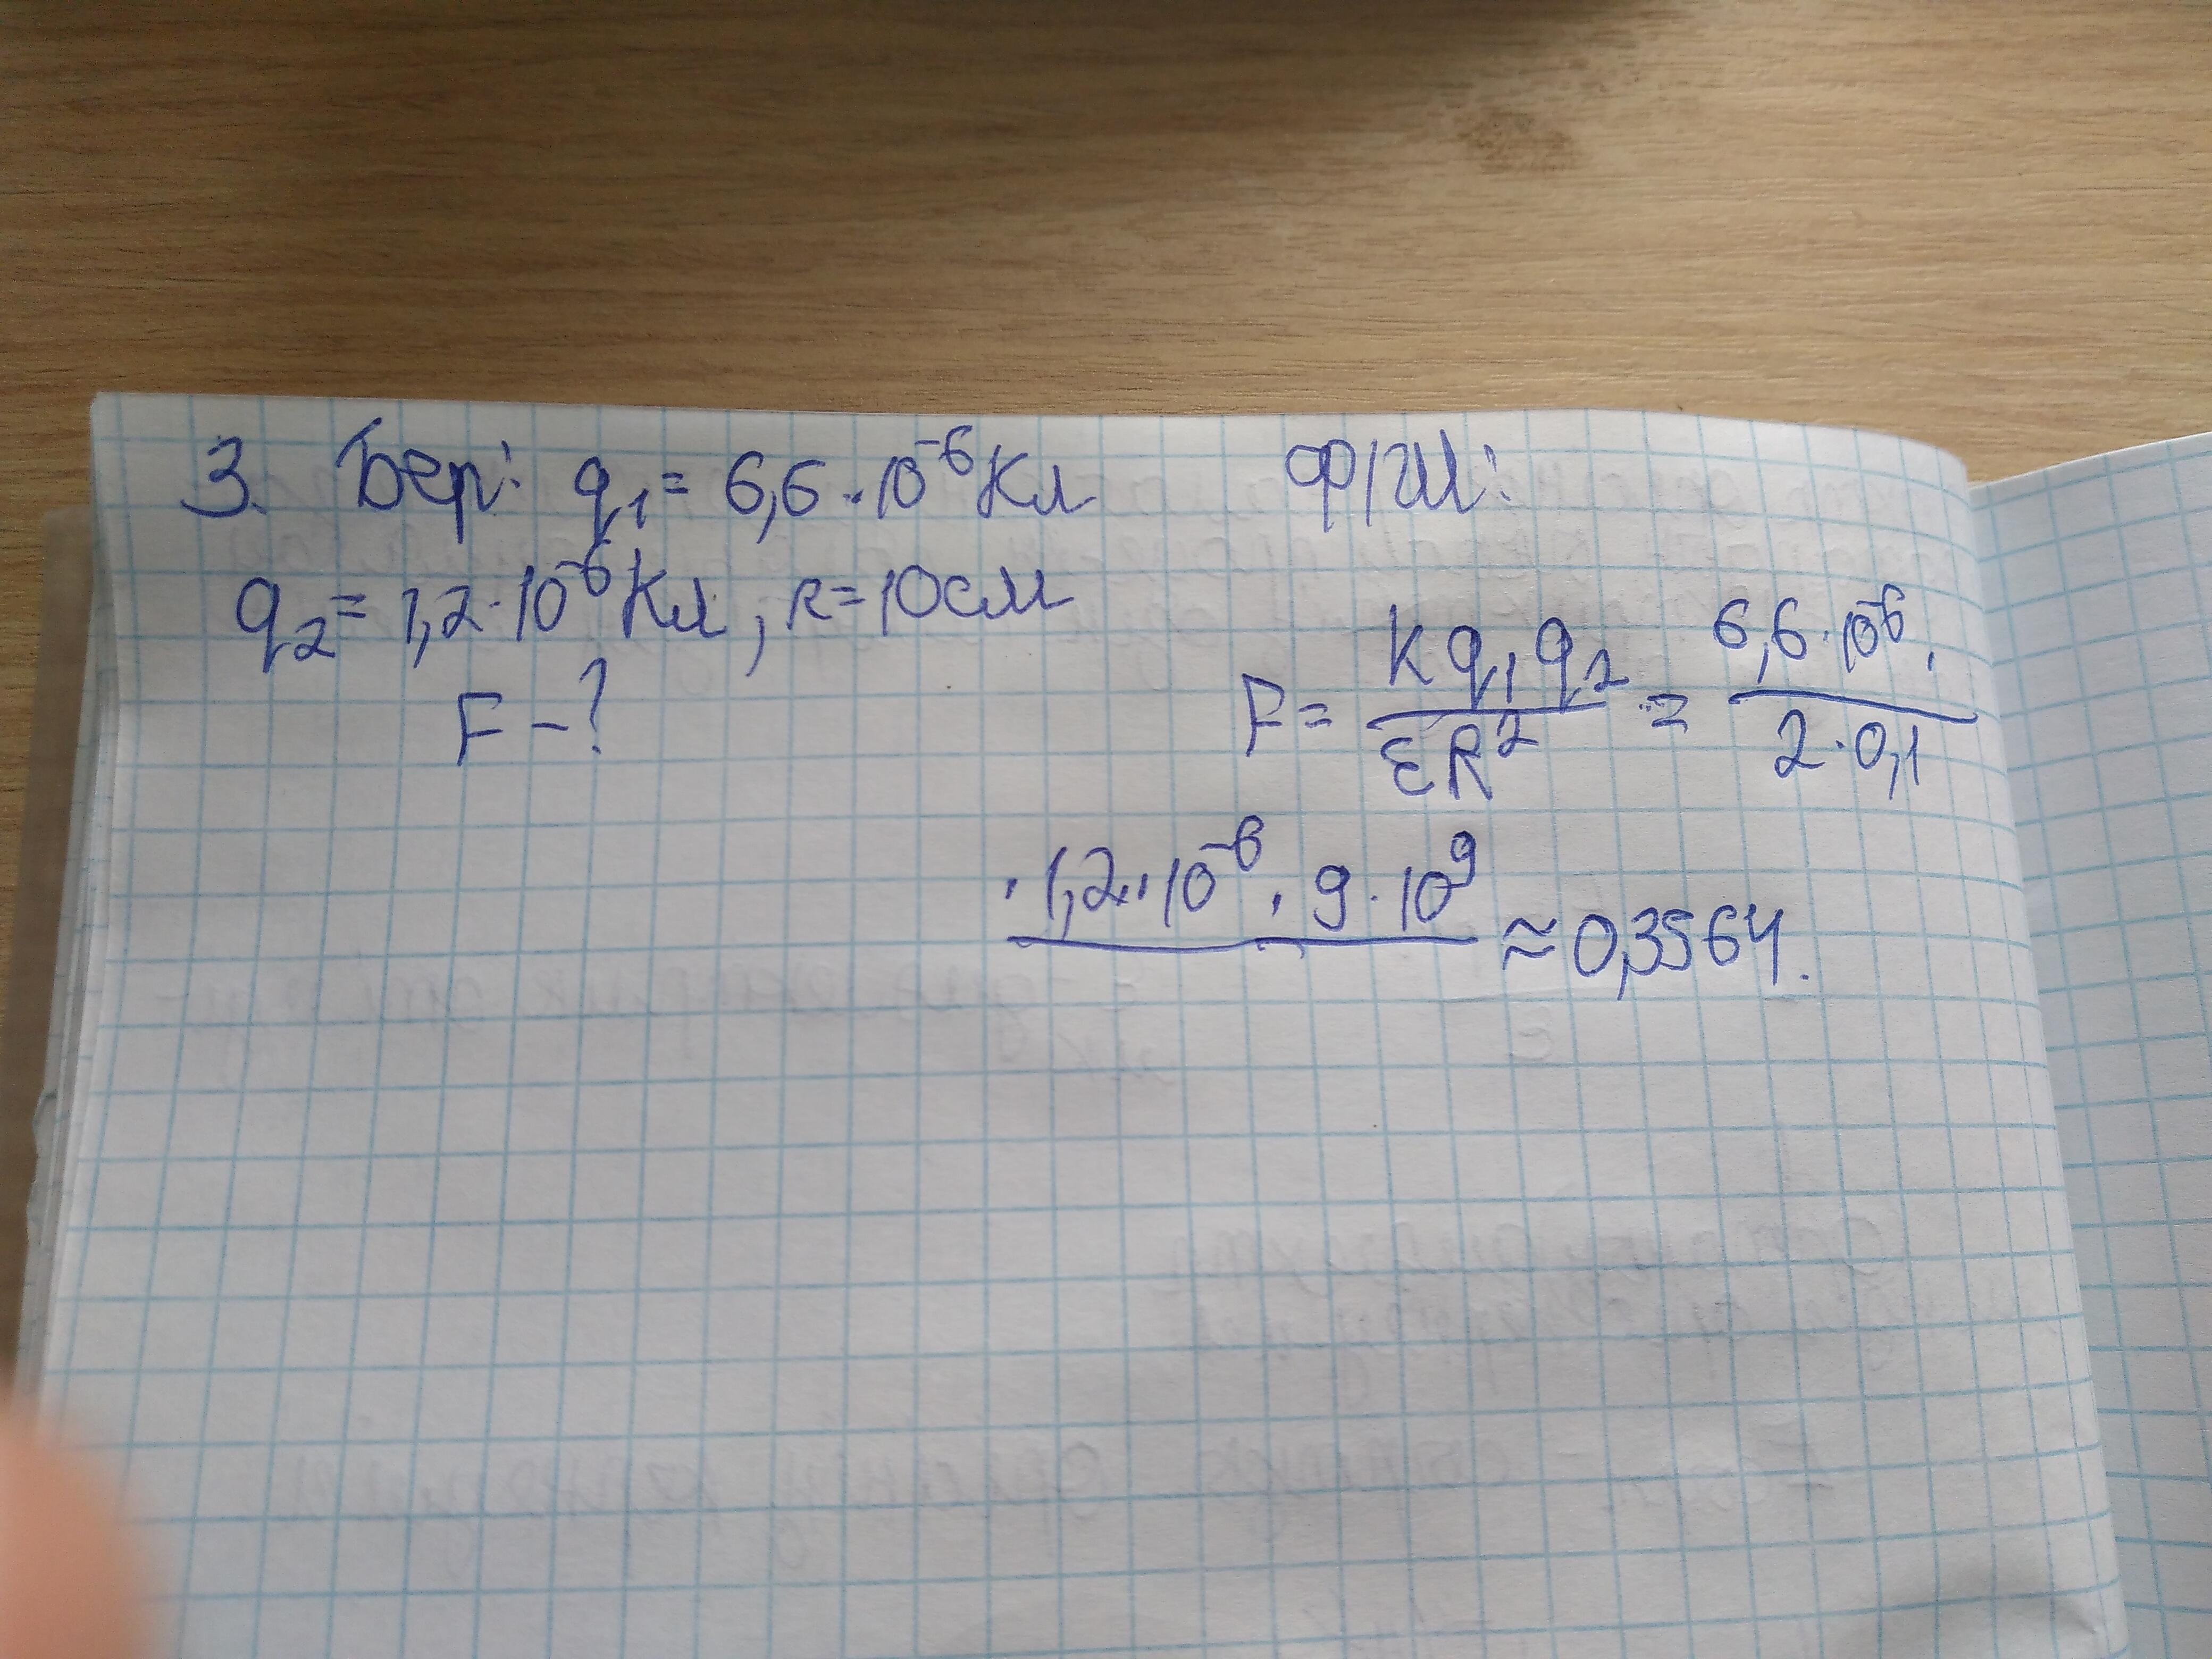 3. Бер: q₁ = 6,6 · 10⁻⁶ Кл
q₂ = 1,2 · 10⁻⁶ Кл, R = 10 см
F - ?
Ф/ш:
F = Kq₁q₂ / ɛR² = 6,6 · 10⁻⁶ · / 2 · 0,1
· 1,2 · 10⁻⁶ · 9 · 10⁹ ≈ 0,3564.